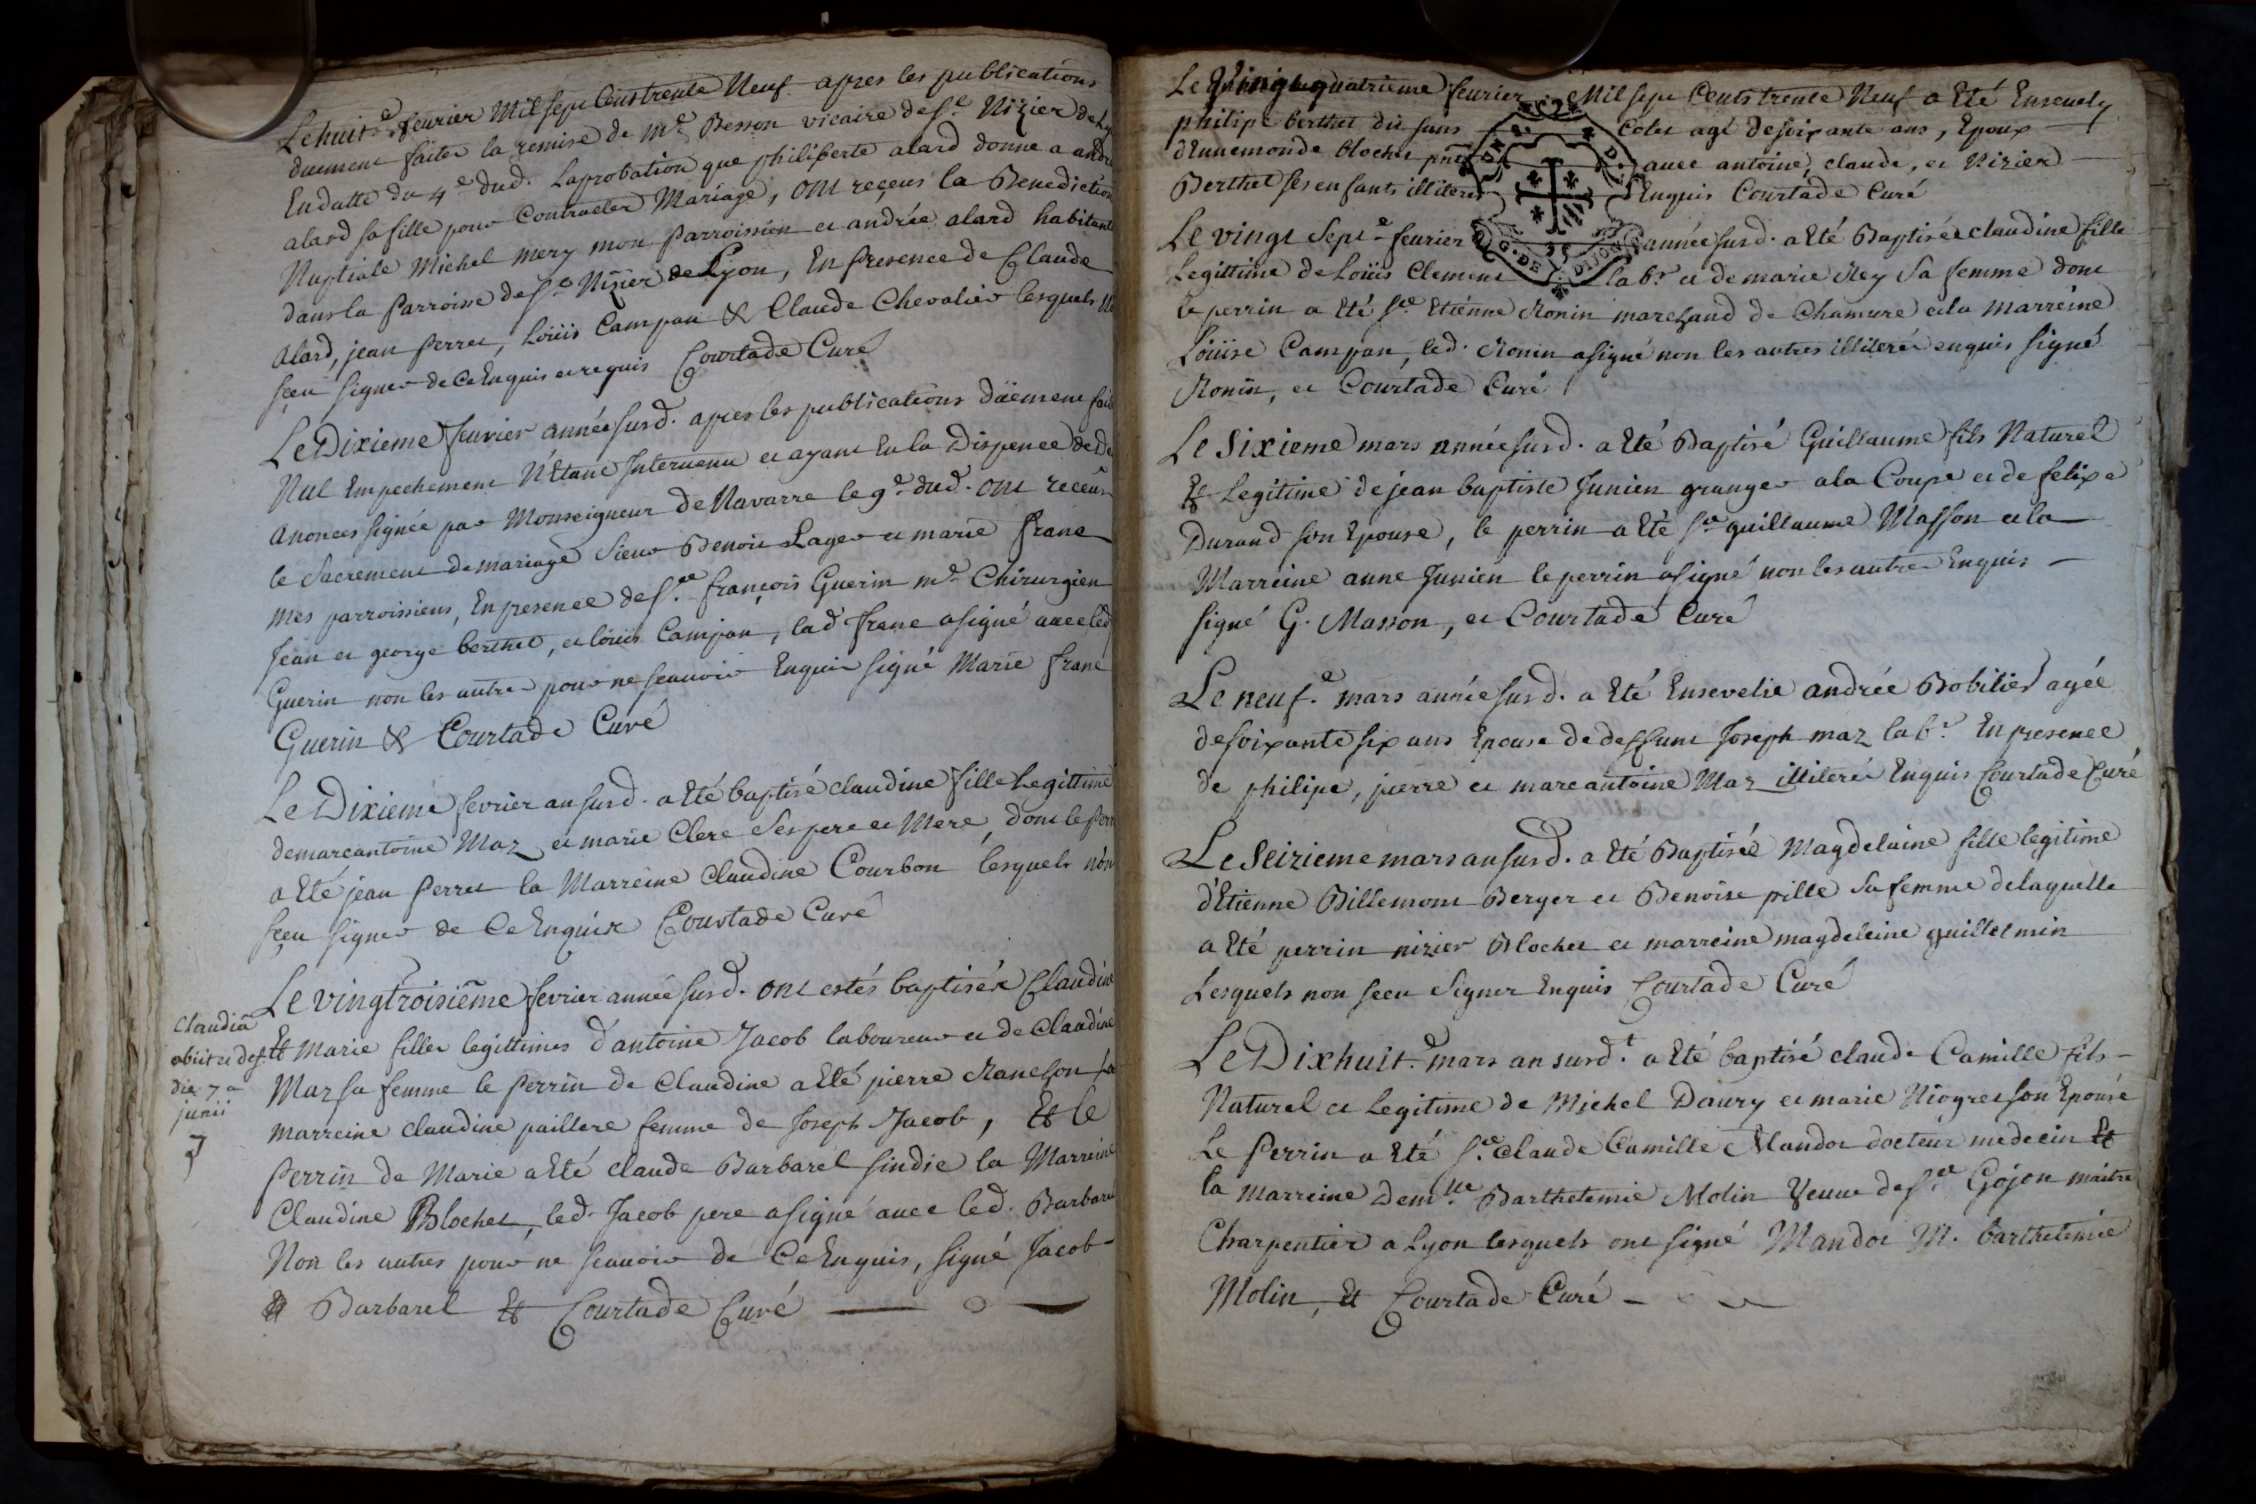 Le huit.e feurier Mil sept Cens trente Neuf apres les publications
duement faites la remise de m.e Besson vicaire de s.t Nizier de
En datte du 4.e dud. Laprobation que philiberte alard donne a
alard sa fille pour Contracter Mariage, ont reçeus la Benediction
Nuptiale Michel mery mon Parroissien et andrée alard habitante
dans la Parroisse de s.t Nizier de Lyon, En presence de Claude
Alard, jean Perret, Loüis Campan & Claude Chevalier lesquels
sçeu signer de Ce Enquis et requis Courtade Curé
Le Dixieme feurier année susd. apres les publications düement
Nul Empechement N'Etant Interuenu et ayant Eu la Dispence de
anonces signée par Monseigneur de Navarre le 9.e dud. ont receu
le Sacrement de mariage Sieur Benoit Lager et marie franc
mes parroissiens, En presence de s.r françois Guerin m.e Chirurgien
jean et george berthet, et loüis Campan, lad franc a signé auec led
Guerin non les autres pour ne scauoir Enquis signé Marie franc
Guerin & Courtade Curé
Le Dixieme fevrier an susd. a Eté baptisé claudine fille Legittime
de marcantoine Maz et marie Clerc Ses pere et Mere, dont le
a Eté jean Perret la Marreine Claudine Courbon lesquels n'ont
sçeu signer de Ce Enquis Courtade Curé
Le vingtroisiême fevrier année susd. ont estés baptisées Claudine
Et Marie filles legittimes d'antoine Jacob laboureur et de Claudine
Maz sa femme le Perrin de Claudine a Eté pierre Ranchon la
marreine claudine paillere femme de Joseph Jacob, Et le
Perrin de Marie a Eté claude Barbarel sindic la Marreine
Claudine Blochet, led. Jacob pere a signé auec led. Barbarel
Non les autres pour ne scauoir de Ce Enquis, signé Jacob
Et Barbarel Et Courtade Curé
Claudia
obiit
die 7.a
junii
Le Vingt quatrieme feurier Mil sept Cents trente Neuf a Eté Enseuely
philipe berthet dit sans Colet agé de soixante ans, Epoux
d'Ennemonde blochet auec antoine, claude, et Nizier
Berthet ses enfants illiterés Enquis Courtade Curé
G. DE DIJON
Le vingt Sept.e feurier année susd. a Eté Baptisée claudine fille
Legittime de Loüis Clement lab.r et de marie Rey Sa femme dont
le perrin a Eté s.r Etienne Ronin marchand de Chamure et la marreine
Loüise Campan, led. Ronin a signé non les autres illiterés enquis signé
Ronin, et Courtade Curé
Le Sixieme mars année susd. a Eté Baptisé Guillaume fils Naturel
Et Legitime de jean baptiste Junien granger a la Coupe et de felixe
Durand son Epouse, le perrin a Eté s.r guillaume Masson et la
Marreine anne Junien le perrin a signé non les autres Enquis
signé G. Masson, et Courtade Curé
Le neuf.e mars année susd. a Eté Ensevelie andrée Bobilier agée
de soixante six ans Epouse de deffunt Joseph maz lab.r En presence
de philipe, pierre et marcantoine Maz illiterés Enquis Courtade Curé
Le Seizieme mars an susd. a Eté Baptisée Magdelaine fille legitime
d'Etienne Billemont Berger et Benoise pille Sa femme de laquelle
a Eté perrin nizier Blochet et marreine magdeleine guillermin
Lesquels non sceu Signer Enquis Courtade Curé
Le Dixhuit.e mars an susd.t a Eté baptisé claude Camille fils
Naturel et Legitime de Michel Daury et marie Niogret son Epouse
Le Perrin a Eté s.r Claude Camille Mandot docteur medecin Et
la marreine Dem.lle Barthelemie Molin Veuue de s.r Gojon maitre
Charpentier a Lyon lesquels ont signé Mandot M. barthelemie
Molin, et Courtade Curé